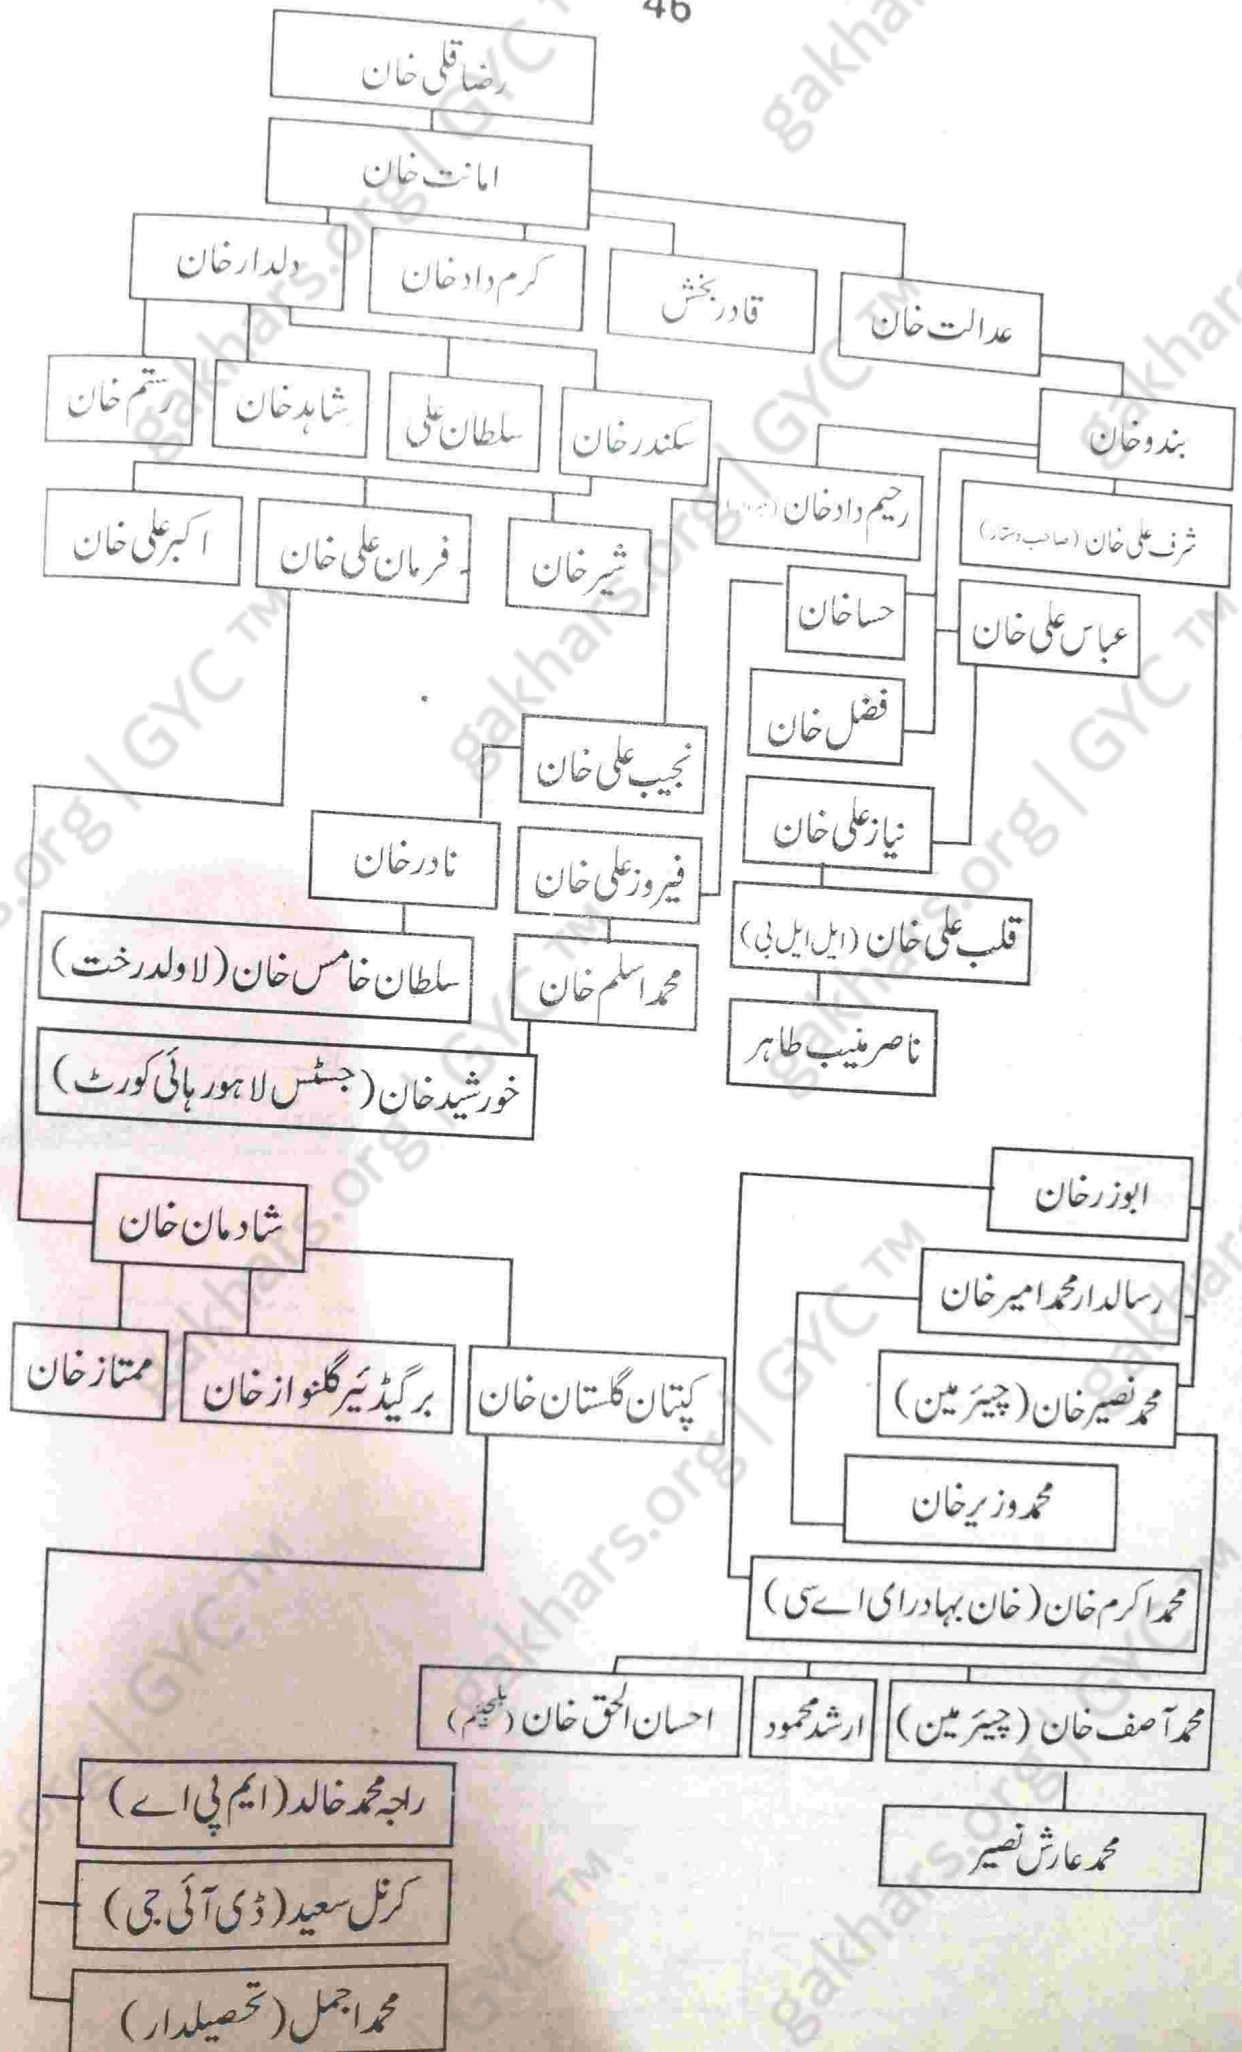 46
رضا قلی خان
امانت خان
دلدار خان
کرم داد خان
قادر بخش
عدالت خان
رستم خان
شاہد خان
سلطان علی
سکندر خان
بندو خان
اکبر علی خان
فرمان علی خان
شیر خان
رحیم داد خان
شرف علی خان (صاحب دستار)
حسا خان
عباس علی خان
فضل خان
نجیب علی خان
نیاز علی خان
نادر خان
فیروز علی خان
قلب علی خان (ایل ایل بی)
سلطان خامس خان (لا ولد رخت)
محمد اسلم خان
ناصر منیب طاہر
خورشید خان (جسٹس لاہور ہائی کورٹ)
ابوزر خان
شادمان خان
رسالدار محمد امیر خان
ممتاز خان
برگیڈئیر گلنواز خان
کپتان گلستان خان
محمد نصیر خان (چیئرمین)
محمد وزیر خان
محمد اکرم خان (خان بہادر ای اے سی)
احسان الحق خان (بلجیئم)
ارشد محمود
محمد آصف خان (چیئرمین)
راجہ محمد خالد (ایم پی اے)
محمد عارش نصیر
کرنل سعید (ڈی آئی جی)
محمد اجمل (تحصیلدار)
gakhars.org | GYC ™